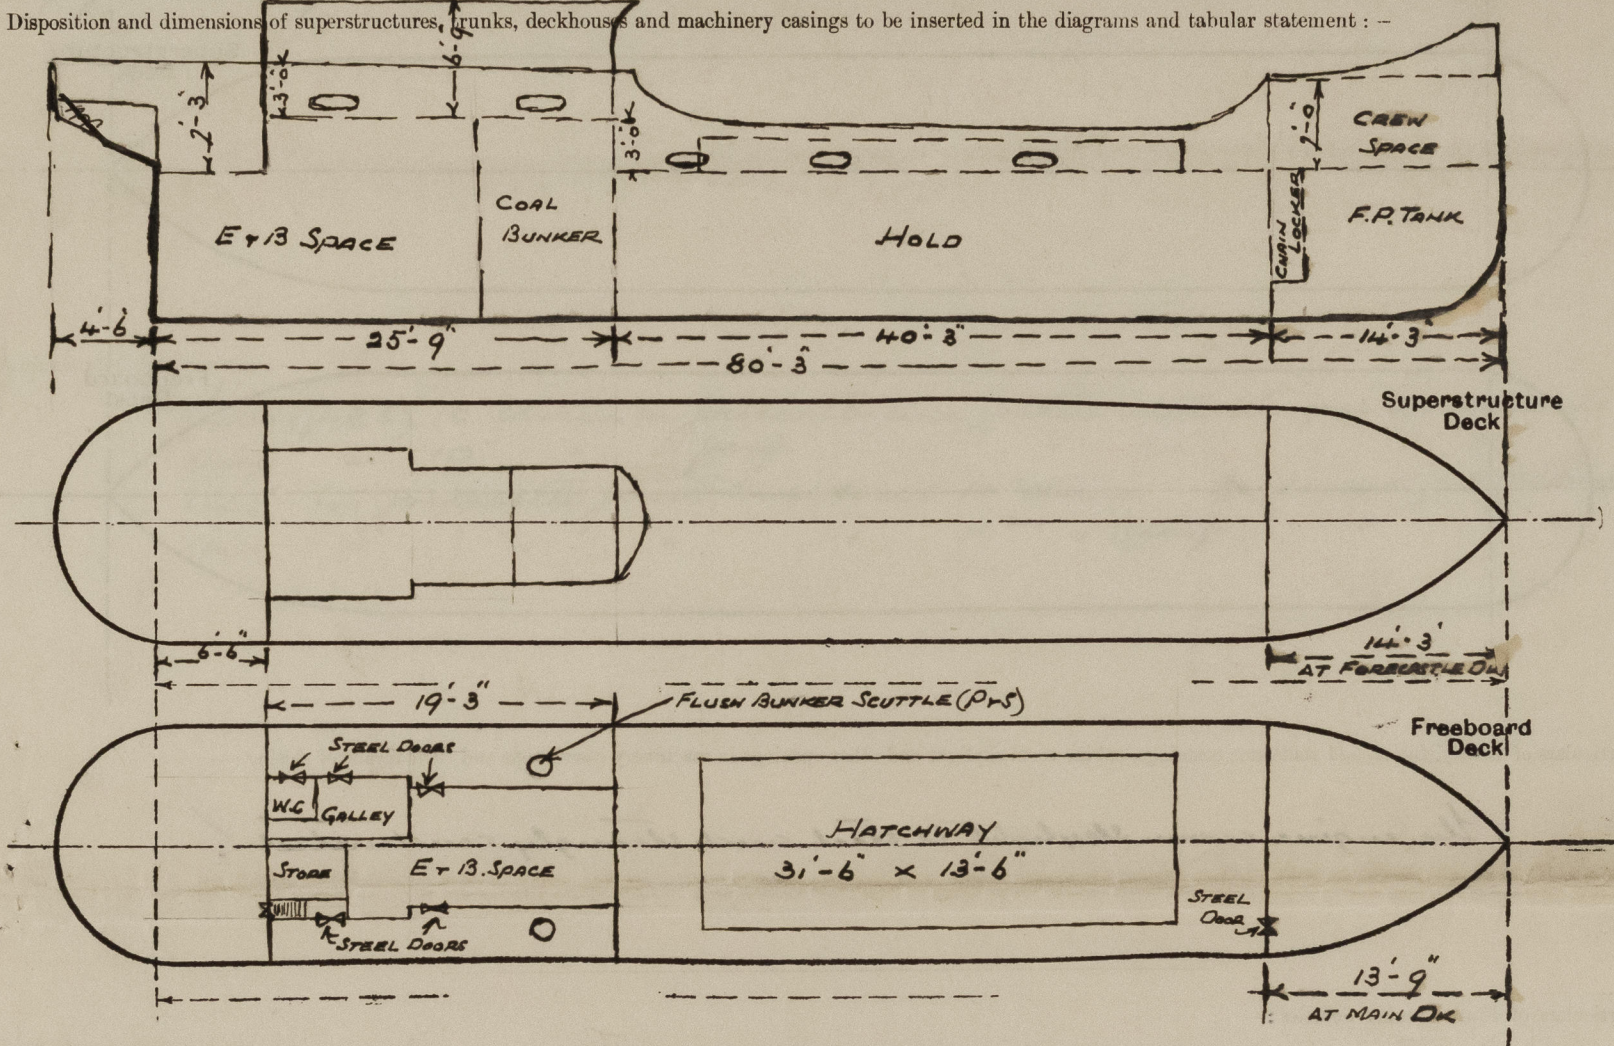 Disposition and dimensions of superstructures, trunks, deckhouses and machinery casings to be inserted in the diagrams and tabular statement : —
6'-9"
3'-0"
2'-3"
3'-0"
7'-0"
CREW
SPACE
COAL
BUNKER
E & B SPACE
HOLD
CHAIN
LOCKER
F.P. TANK
4'-6"
25'-9"
40'-3"
14'-3"
80'-3"
Superstructure
Deck
6'-6"
14'-3"
AT FORECASTLE DK
19'-3"
FLUSH BUNKER SCUTTLE (P&S)
Freeboard
Deck
STEEL DOORS
W.C
GALLEY
HATCHWAY
31'-6" x 13'-6"
STORE
E & B. SPACE
STEEL
DOOR
STEEL DOORS
13'-9"
AT MAIN DK